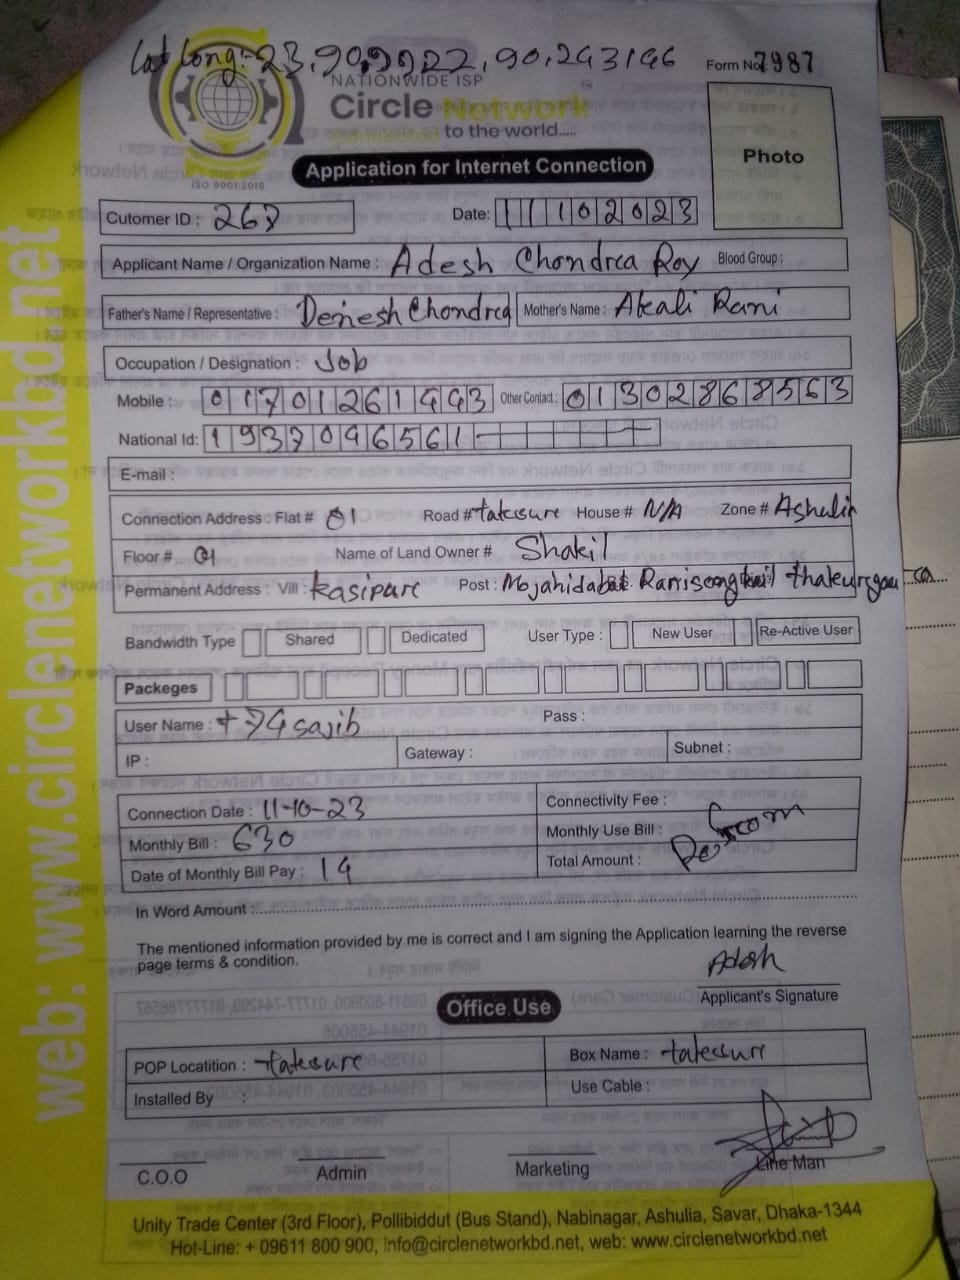 Lat Long:-23.909922, 90.243146
Form No. 7987
NATIONWIDE ISP
Circle Network
to the world.....
ISO 9001:2015
Application for Internet Connection
Photo
Cutomer ID : 267
Date: 11102023
Applicant Name / Organization Name : Adesh Chondra Roy Blood Group :
Father's Name / Representative : Denesh Chondra Mother's Name : Akali Rani
Occupation / Designation : Job
Mobile : 01701261443 Other Contact : 01302868563
National Id: 1937096561-
E-mail :
Connection Address : Flat # 01 Road # House # N/A Zone # Ashulia
Floor # 01 Name of Land Owner # Shakil
Permanent Address : Vill : Kasipur Post : Mojahidabad
Bandwidth Type Shared Dedicated User Type : New User Re-Active User
Packeges
User Name : t74sajib Pass :
IP : Gateway : Subnet :
Connection Date : 11-10-23 Connectivity Fee :
Monthly Bill : 630 Monthly Use Bill :
Date of Monthly Bill Pay : 14 Total Amount :
In Word Amount :
The mentioned information provided by me is correct and I am signing the Application learning the reverse
page terms & condition.
Adesh
Applicant's Signature
Office Use
POP Locatition : Box Name :
Installed By : Use Cable :
C.O.O Admin Marketing Line Man
Unity Trade Center (3rd Floor), Pollibiddut (Bus Stand), Nabinagar, Ashulia, Savar, Dhaka-1344
Hot-Line: + 09611 800 900, info@circlenetworkbd.net, web: www.circlenetworkbd.net
web: www.circlenetworkbd.net